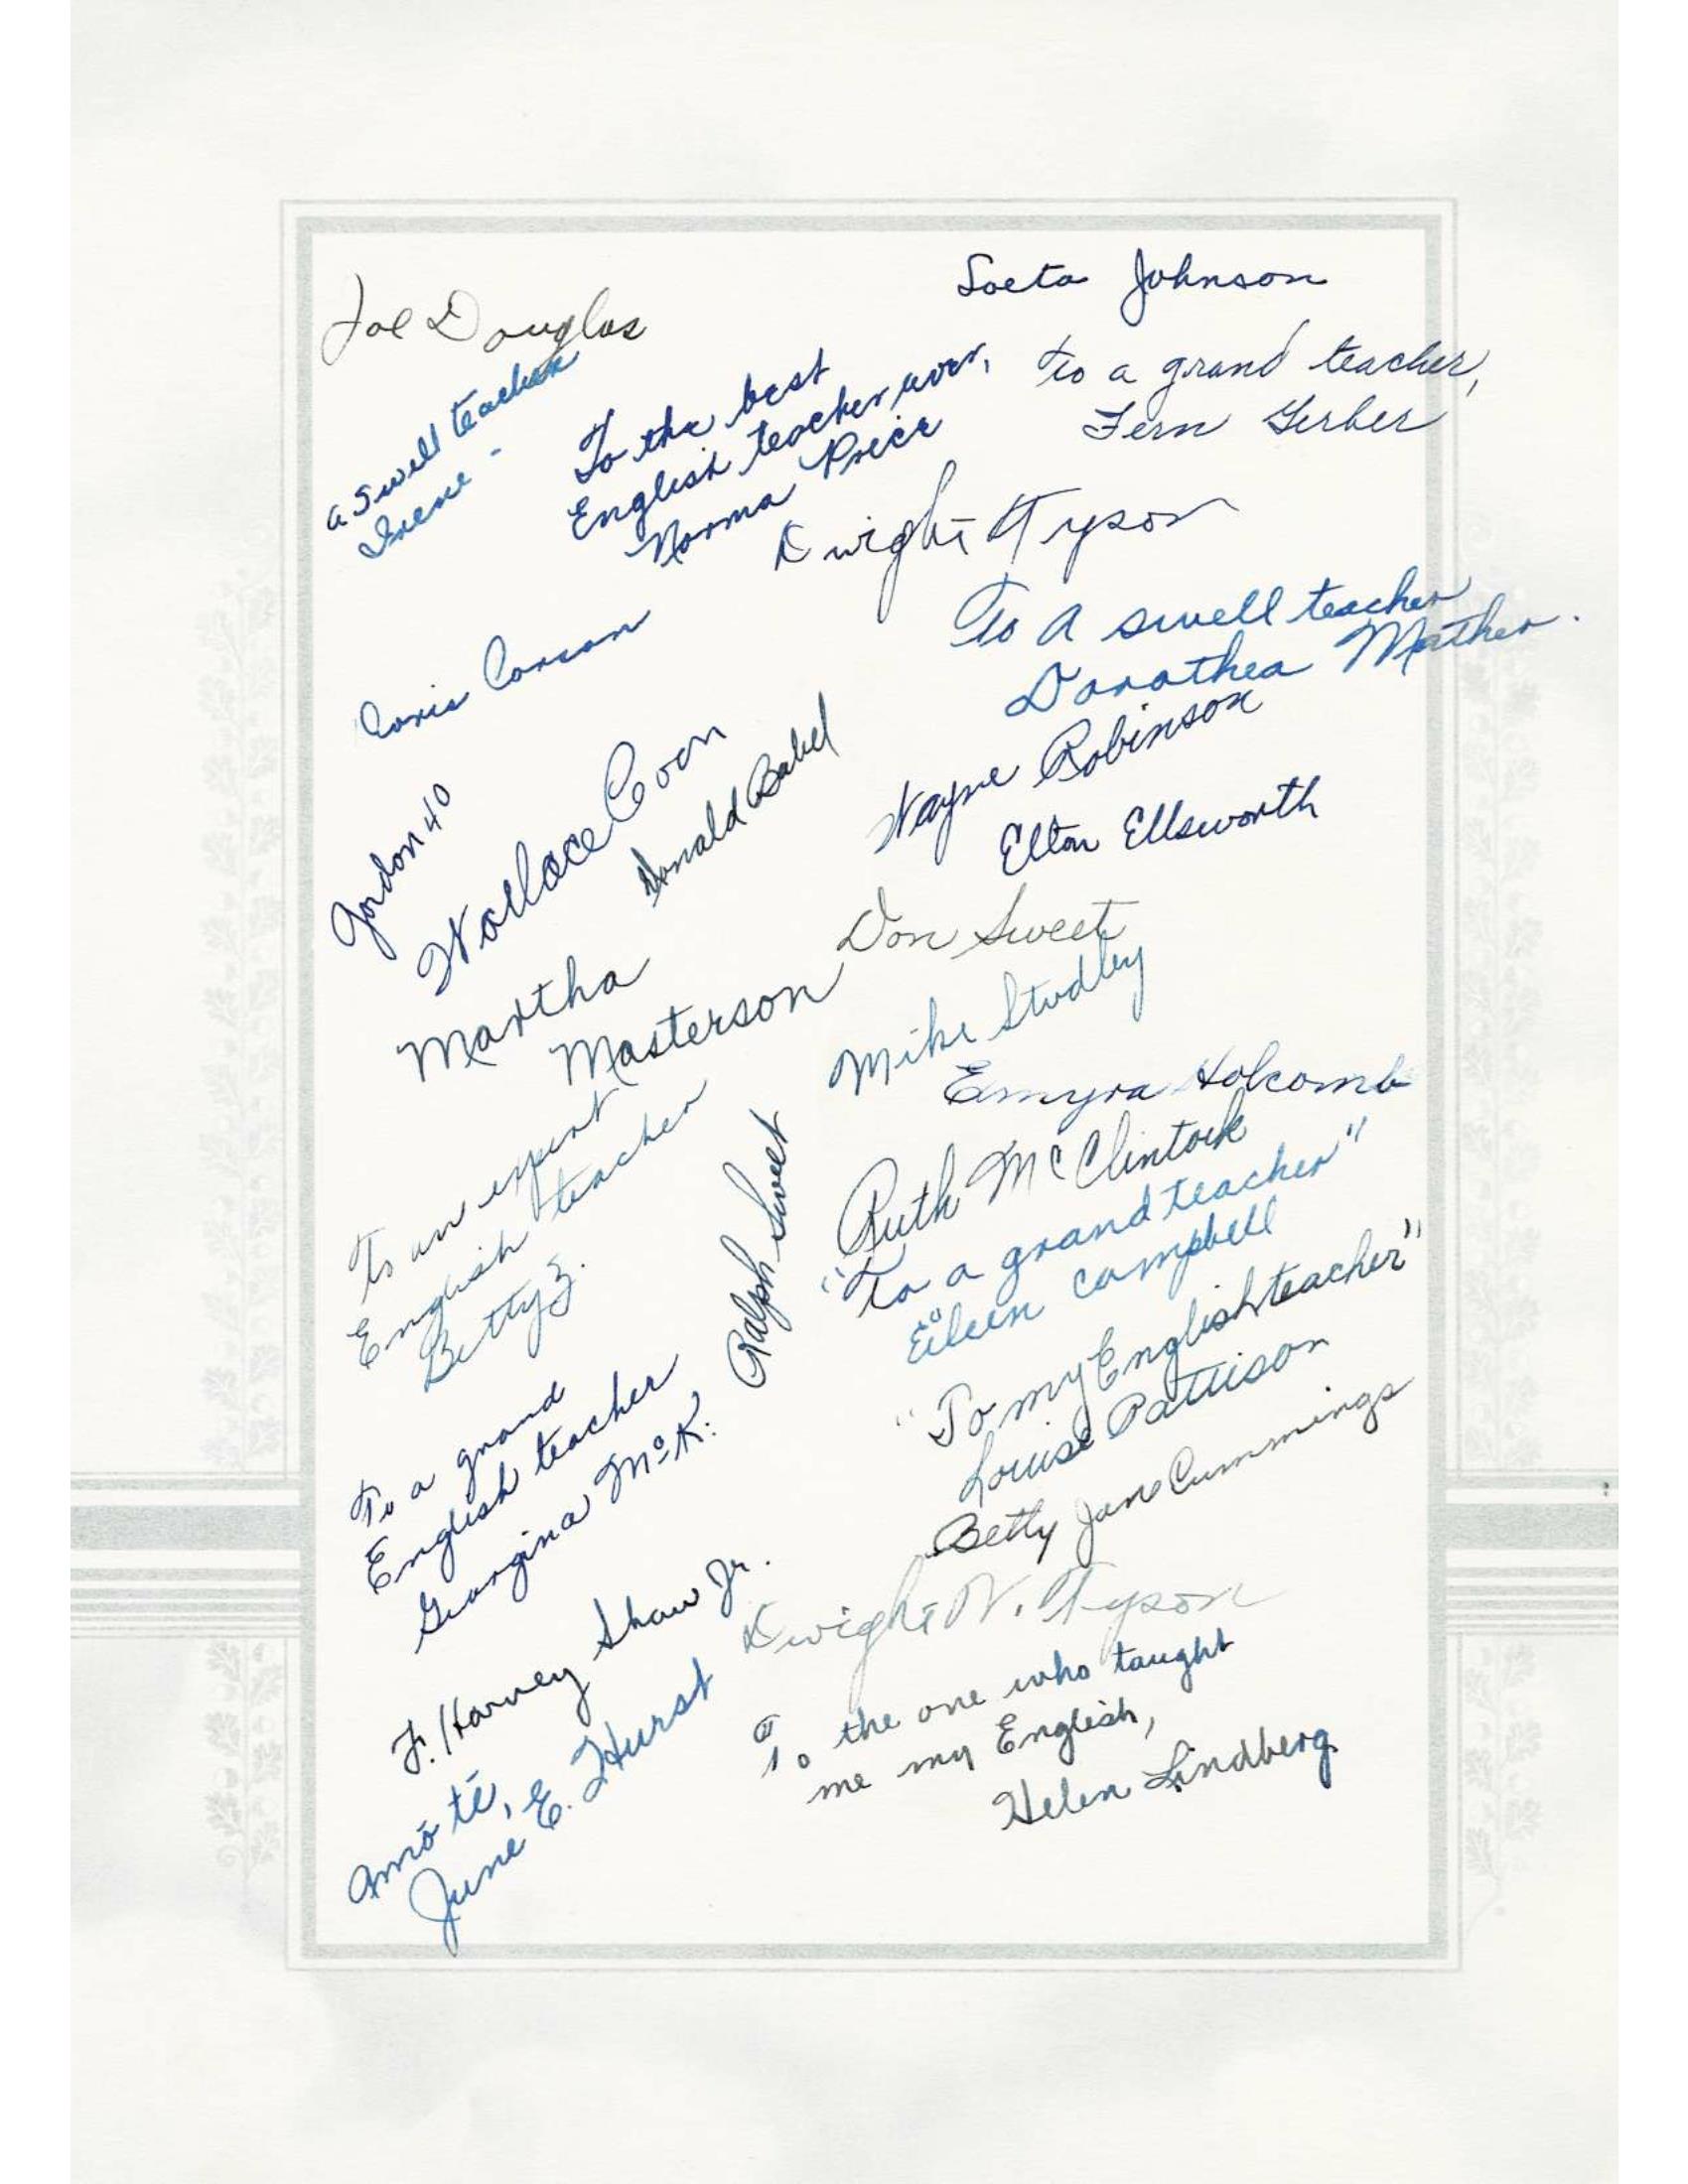 Joe Douglas
a swell teacher
Irene -
To the best
English teacher ever,
Norma Price
Loeta Johnson
To a grand teacher,
Fern Gerber
Dwight Tyson
To A swell teacher
Dorothea Mather.
Corson
Gordon 40
Wallace Coon
Donald Babel
Wayne Robinson
Elton Ellsworth
Martha
Masterson
Don Sweet
Mike Studley
Emyra Holcomb
To an expert
English teacher
Betty Z.
Ralph Sweet
Ruth McClintock
"To a grand teacher"
Eileen Campbell
"To my English teacher"
Louise Pattison
Betty Jane Cummings
To a grand
English teacher
Georgina McK.
F. Harvey Shaw Jr.
Dwight V. Tyson
Amo té,
June E. Hurst
To the one who taught
me my English,
Helen Lindberg